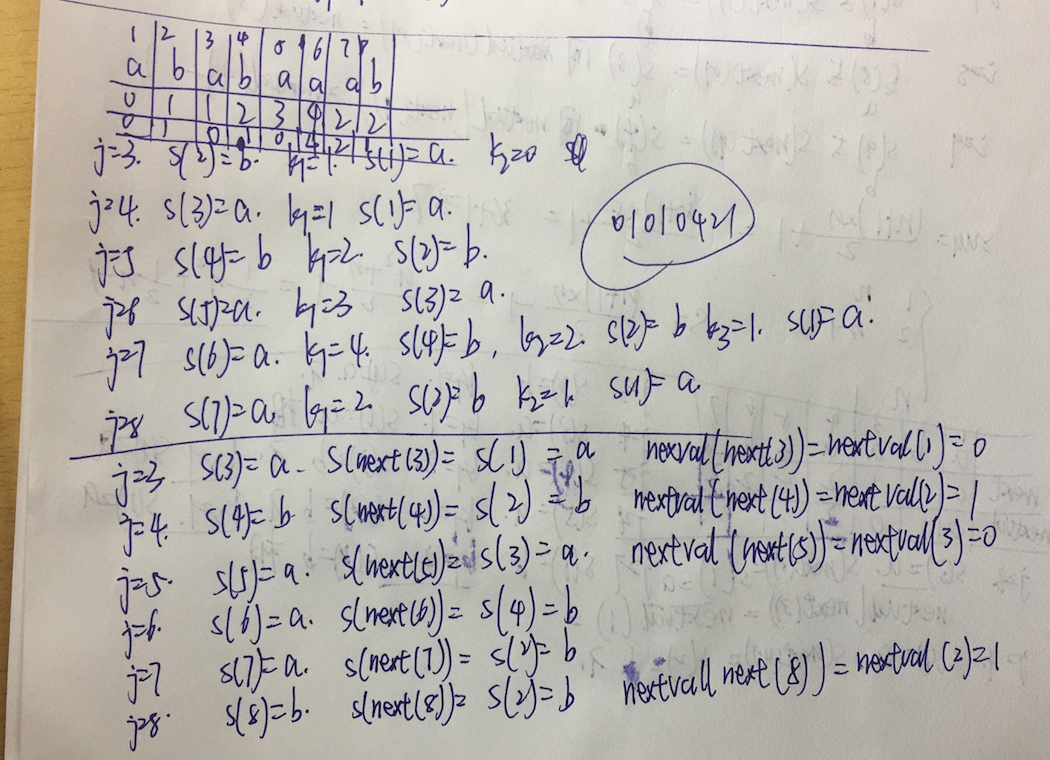 1 2 3 4 5 6 7 8
a b a b a a a b
0 1 1 2 3 4 2 2
0 1 0 1 0 4 2 1
j=3. s(2)=b. k1=1. s(1)=a. k2=0
j=4. s(3)=a. k1=1 s(1)=a.
01010421
j=5 s(4)=b k1=2. s(2)=b.
j=6 s(5)=a. k1=3 s(3)=a.
j=7 s(6)=a. k1=4. s(4)=b, k2=2. s(2)=b k3=1. s(1)=a.
j=8 s(7)=a k1=2 s(2)=b k2=1. s(1)=a
j=3 s(3)=a - s(next(3))=s(1)=a nexval(next(3))=nextval(1)=0
j=4. s(4)=b s(next(4))=s(2)=b nextval(next(4))=nextval(2)=1
j=5. s(5)=a. s(next(5))=s(3)=a. nextval(next(5))=nextval(3)=0
j=6. s(6)=a. s(next(6))=s(4)=b
j=7 s(7)=a. s(next(7))=s(2)=b
j=8. s(8)=b. s(next(8))=s(2)=b nextval(next(8))=nextval(2)=1